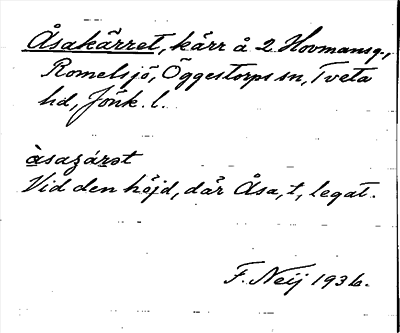 Åsakärret, kärr å 2 Hovmansg.,
Romelsjö, Öggestorps sn, Tveta
hd, Jönk. l.
Vid den höjd, där Åsa, t, legat.
F. Neij 1936.